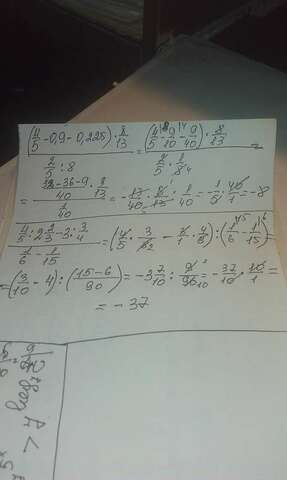 (4/5 - 0,9 - 0,225) · 8/13 / 2/5 : 8 = (4/5 - 9/10 - 9/40) · 8/13 / 2/5 · 1/8 =
= 32-36-9/40 · 8/13 / 1/40 = - 13/40 · 8/13 : 1/40 = - 1/5 · 40/1 = -8
4/5 : 2 2/3 - 3 : 3/4 / 1/6 - 1/15 = (4/5 · 3/8 - 3/1 · 4/3) : (1/6 - 1/15) =
= (3/10 - 4) : (15-6/90) = - 3 7/10 : 9/90 = - 37/10 · 10/1 =
= - 37